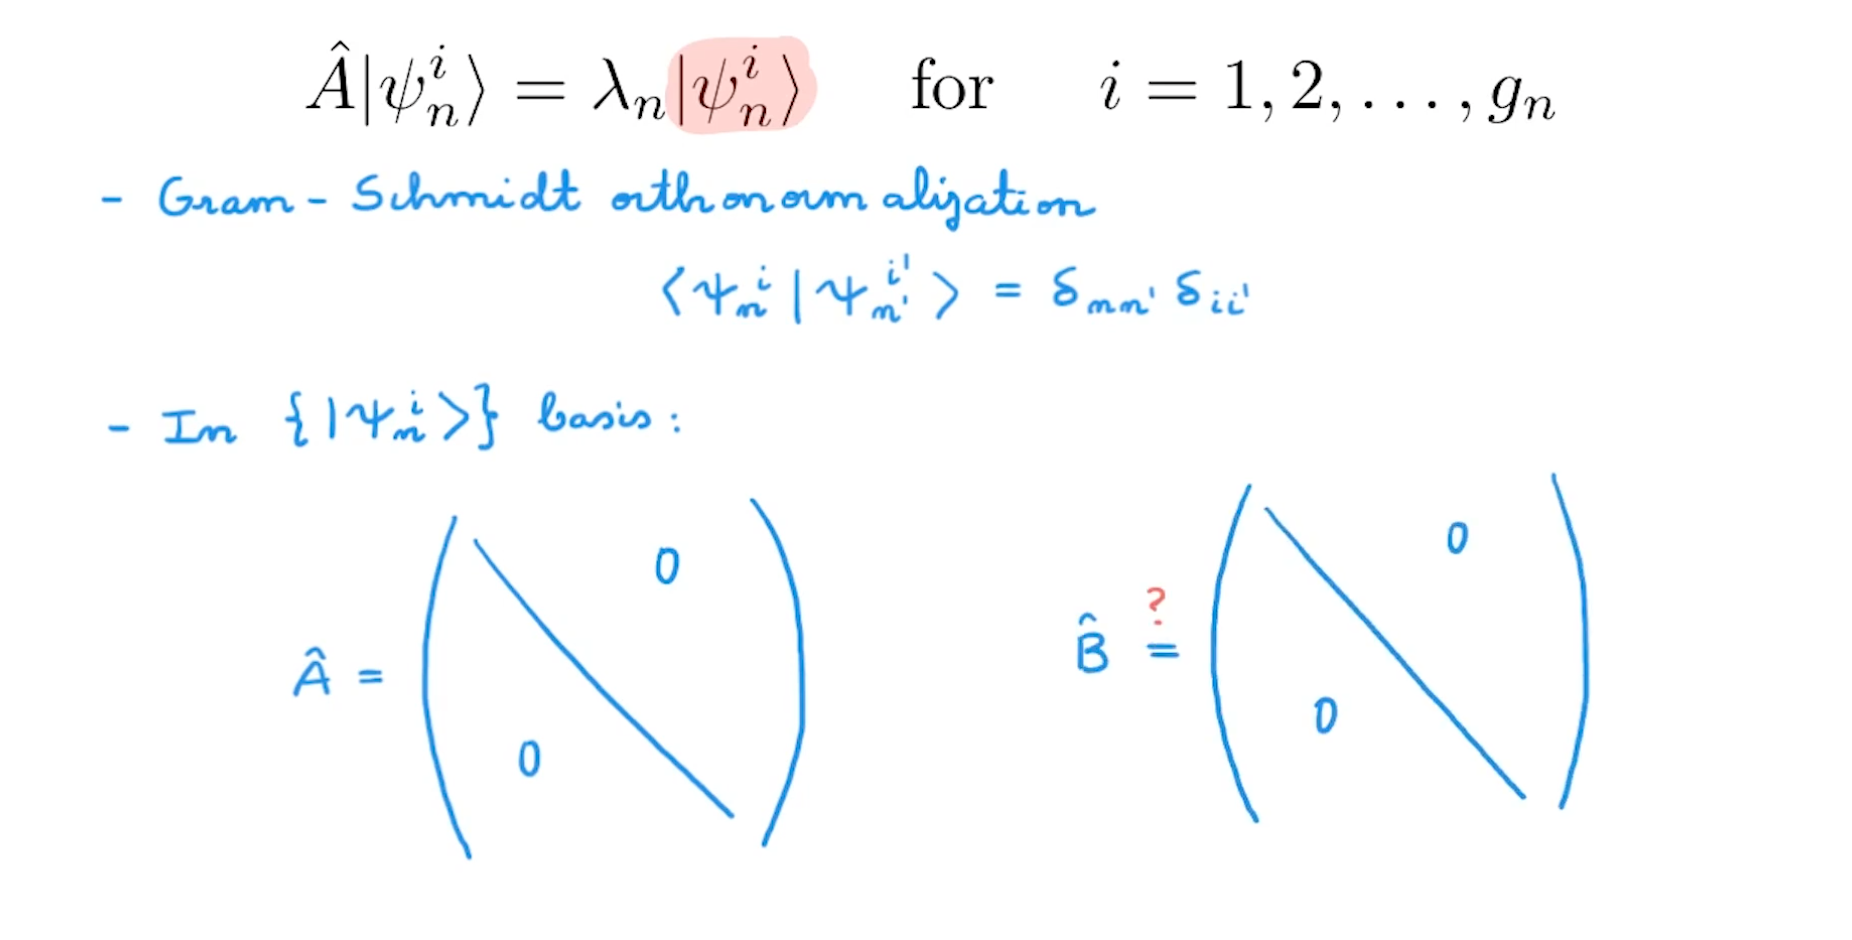 Â|ψₙⁱ⟩ = λₙ|ψₙⁱ⟩ for i = 1, 2, . . . , gₙ
- Gram - Schmidt orthonormalization
⟨ψₙⁱ|ψₙ'ⁱ'⟩ = δₙₙ' δᵢᵢ'
- In {|ψₙⁱ⟩} basis:
Â = ( 0 0 )
B̂ ?= ( 0 0 )